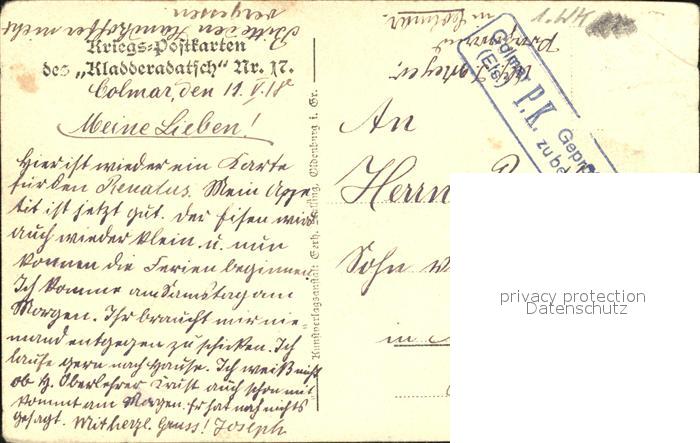 Bitte den Handkoffer nicht
vergessen
Kriegs-Postkarten
des „Kladderadatsch" Nr. 17.
Colmar, den 11. V. 18
Meine Lieben!
Hier ist wieder ein Karte
für den Renatus. Mein Appe
tit ist jetzt gut. Der Eifen wird
auch wieder klein u. nun
können die Ferien beginnen.
Ich komme am Samstag am
Morgen. Ihr braucht mir nie-
mand entgegen zu schicken. Ich
laufe gern nach Hause. Ich weiß nicht
ob H. Oberlehrer Trüst auch schon mit
kommt am Morgen. Er hat noch nichts
gesagt. Mit herzl. Gruss! Joseph
Kunstverlagsanstalt Gerh. Stalling, Oldenburg i. Gr.
in Colmar
1. WK
Colmar
(Els)
P.K.
Gepr
zu be
An
Herrn
Sohn
in
privacy protection
Datenschutz